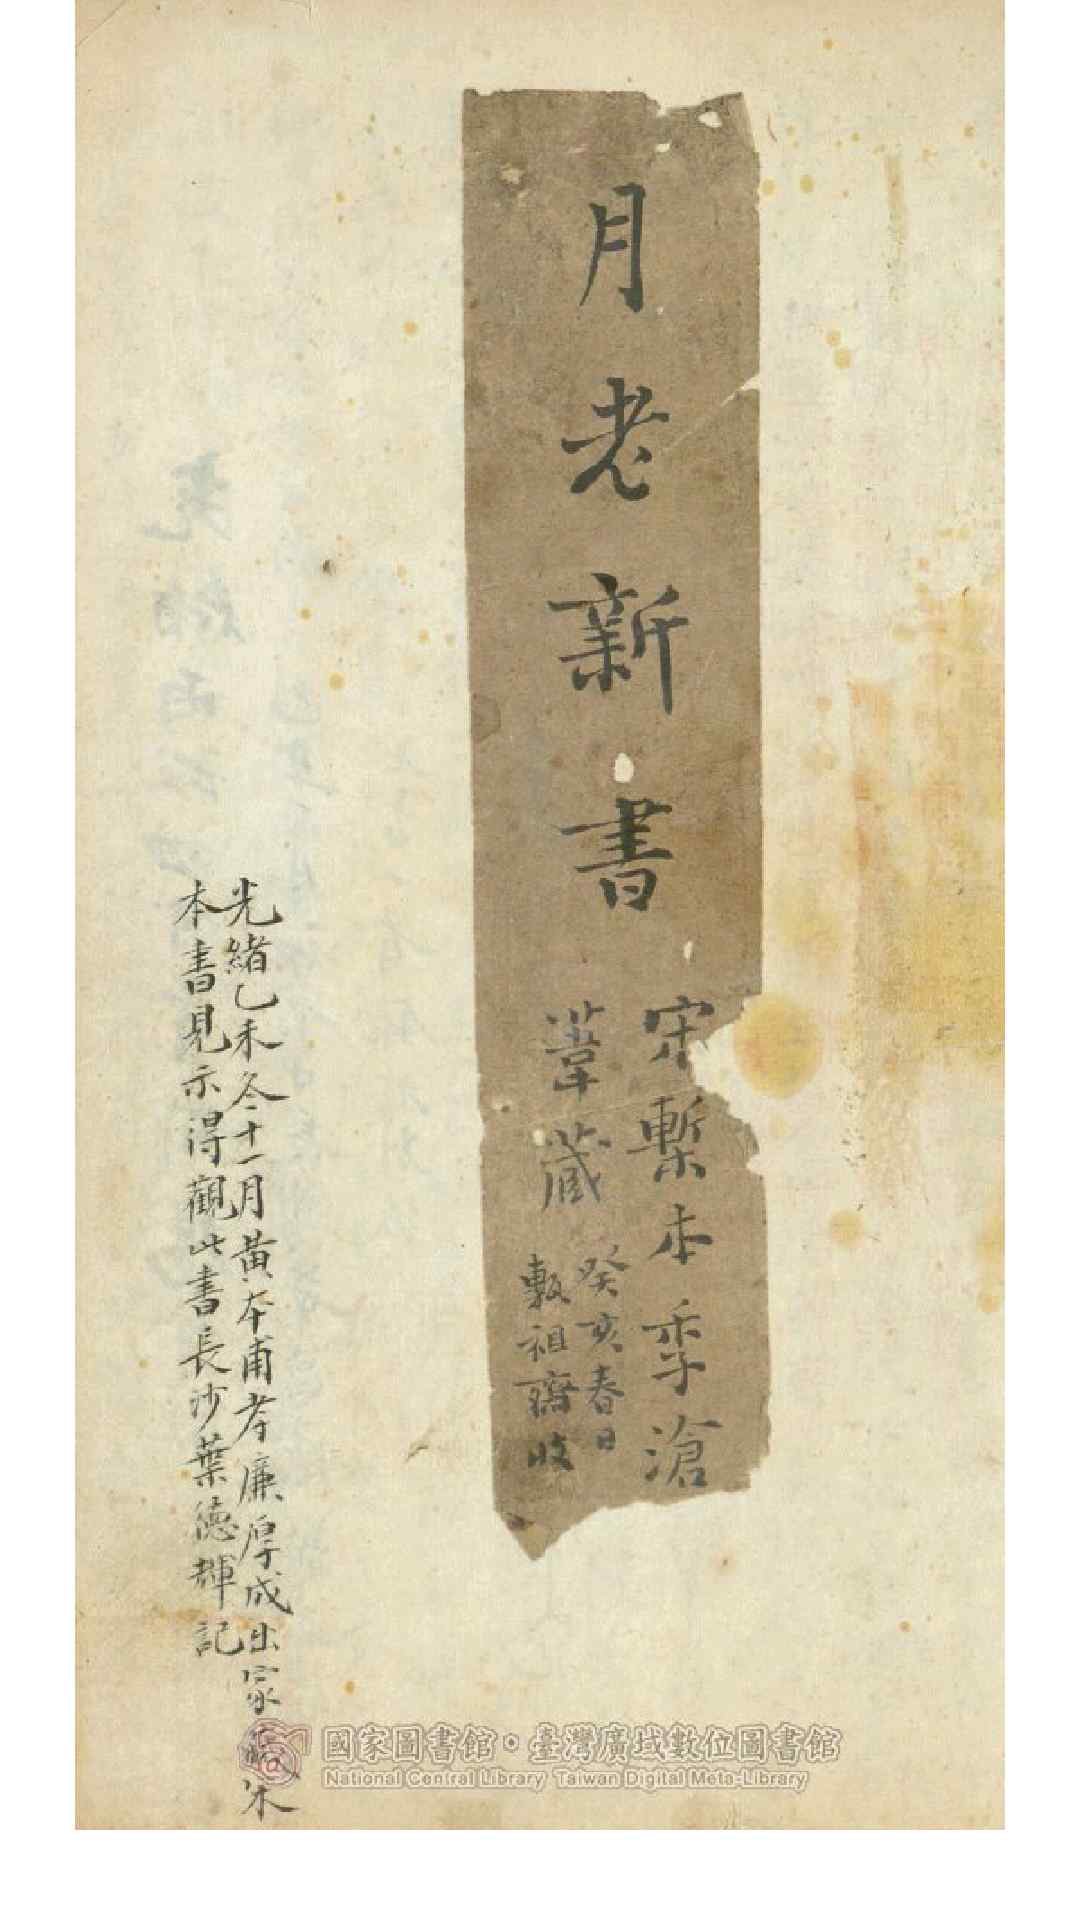 月老新書
宋槧本季滄
葦藏
癸亥春日
祖齋收
光緒乙未冬十一月黃本甫孝廉厚成出家藏宋
本書見示得觀此書長沙葉德輝記
國家圖書館・臺灣廣域數位圖書館
National Central Library Taiwan Digital Meta-Library